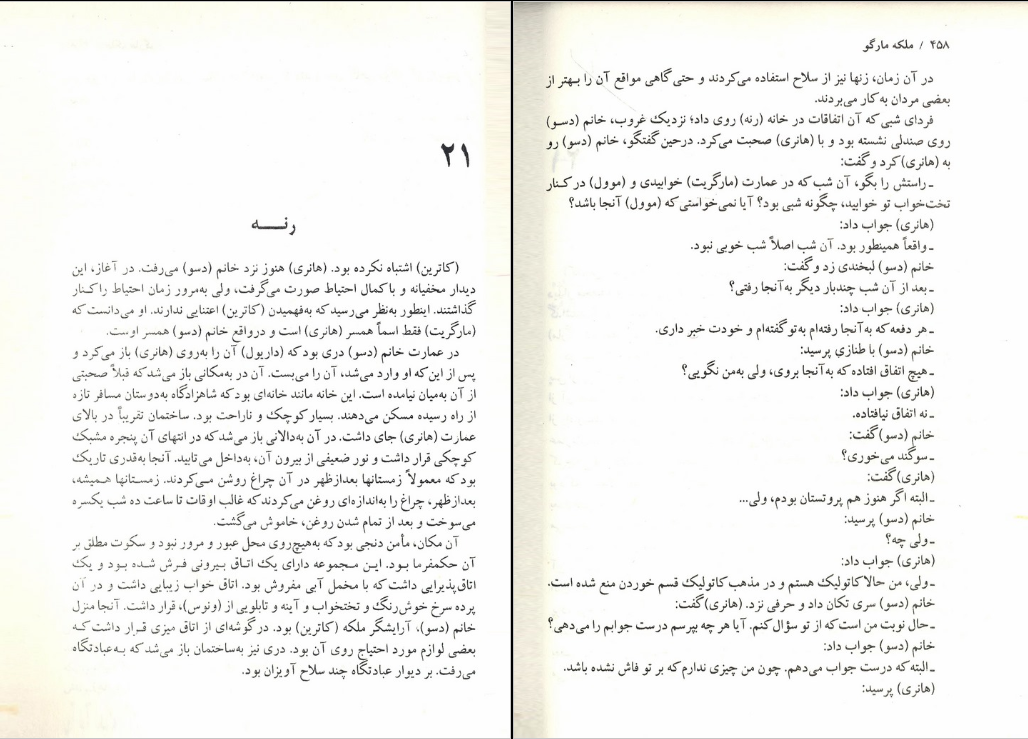 ۲۱
رنــه
(کاترین) اشتباه نکرده بود. (هانری) هنوز نزد خانم (دسو) می‌رفت. در آغاز، این
دیدار مخفیانه و با کمال احتیاط صورت می‌گرفت، ولی به‌مرور زمان احتیاط را کنار
گذاشتند. اینطور به‌نظر می‌رسید که به‌فهمیدن (کاترین) اعتنایی ندارند. او می‌دانست که
(مارگریت) فقط اسماً همسر (هانری) است و درواقع خانم (دسو) همسر اوست.
در عمارت خانم (دسو) دری بود که (داریول) آن را به‌روی (هانری) باز می‌کرد و
پس از این‌که او وارد می‌شد، آن را می‌بست. آن در به‌مکانی باز می‌شد که قبلاً صحبتی
از آن به‌میان نیامده است. این خانه مانند خانه‌ای بود که شاهزادگاه به‌دوستان مسافر تازه
از راه رسیده مسکن می‌دهند. بسیار کوچک و ناراحت بود. ساختمان تقریباً در بالای
عمارت (هانری) جای داشت. در آن به‌دالانی باز می‌شد که در انتهای آن پنجره مشبک
کوچکی قرار داشت و نور ضعیفی از بیرون آن، به‌داخل می‌تابید. آنجا به‌قدری تاریک
بود که معمولاً زمستانها بعدازظهر در آن چراغ روشن می‌کردند. زمستانها همیشه،
بعدازظهر، چراغ را به‌اندازه‌ای روغن می‌کردند که غالب اوقات تا ساعت ده شب یکسره
می‌سوخت و بعد از تمام شدن روغن، خاموش می‌گشت.
آن مکان، مأمن دنجی بود که به‌هیچ‌روی محل عبور و مرور نبود و سکوت مطلق بر
آن حکمفرما بود. این مجموعه دارای یک اتاق بیرونی فرش شده بود و یک
اتاق پذیرایی داشت که با مخمل آبی مفروش بود. اتاق خواب زیبایی داشت و در آن
پرده سرخ خوش‌رنگ و تختخواب و آینه و تابلویی از (ونوس)، قرار داشت. آنجا منزل
خانم (دسو)، آرایشگر ملکه (کاترین) بود. در گوشه‌ای از اتاق میزی قرار داشت که
بعضی لوازم مورد احتیاج روی آن بود. دری نیز به‌ساختمان باز می‌شد که به‌عبادتگاه
می‌رفت. بر دیوار عبادتگاه چند سلاح آویزان بود.
۴۵۸ / ملکه مارگو
در آن زمان، زنها نیز از سلاح استفاده می‌کردند و حتی گاهی مواقع آن را بهتر از
بعضی مردان به‌کار می‌بردند.
فردای شبی که آن اتفاقات در خانه (رنه) روی داد؛ نزدیک غروب، خانم (دسو)
روی صندلی نشسته بود و با (هانری) صحبت می‌کرد. درحین گفتگو، خانم (دسو) رو
به (هانری) کرد و گفت:
ـ راستش را بگو، آن شب که در عمارت (مارگریت) خوابیدی و (موول) در کنار
تخت‌خواب تو خوابید، چگونه شبی بود؟ آیا نمی‌خواستی که (موول) آنجا باشد؟
(هانری) جواب داد:
ـ واقعاً همینطور بود. آن شب اصلاً شب خوبی نبود.
خانم (دسو) لبخندی زد و گفت:
ـ بعد از آن شب چندبار دیگر به‌آنجا رفتی؟
(هانری) جواب داد:
ـ هر دفعه که به‌آنجا رفته‌ام به‌تو گفته‌ام و خودت خبر داری.
خانم (دسو) با طنازی پرسید:
ـ هیچ اتفاق افتاده که به‌آنجا بروی، ولی به‌من نگویی؟
(هانری) جواب داد:
ـ نه اتفاق نیافتاده.
خانم (دسو) گفت:
ـ سوگند می‌خوری؟
(هانری) گفت:
ـ البته اگر هنوز هم پروتستان بودم، ولی...
خانم (دسو) پرسید:
ـ ولی چه؟
(هانری) جواب داد:
ـ ولی، من حالا کاتولیک هستم و در مذهب کاتولیک قسم خوردن منع شده است.
خانم (دسو) سری تکان داد و حرفی نزد. (هانری) گفت:
ـ حال نوبت من است که از تو سؤال کنم. آیا هر چه بپرسم درست جوابم را می‌دهی؟
خانم (دسو) جواب داد:
ـ البته که درست جواب می‌دهم. چون من چیزی ندارم که بر تو فاش نشده باشد.
(هانری) پرسید: